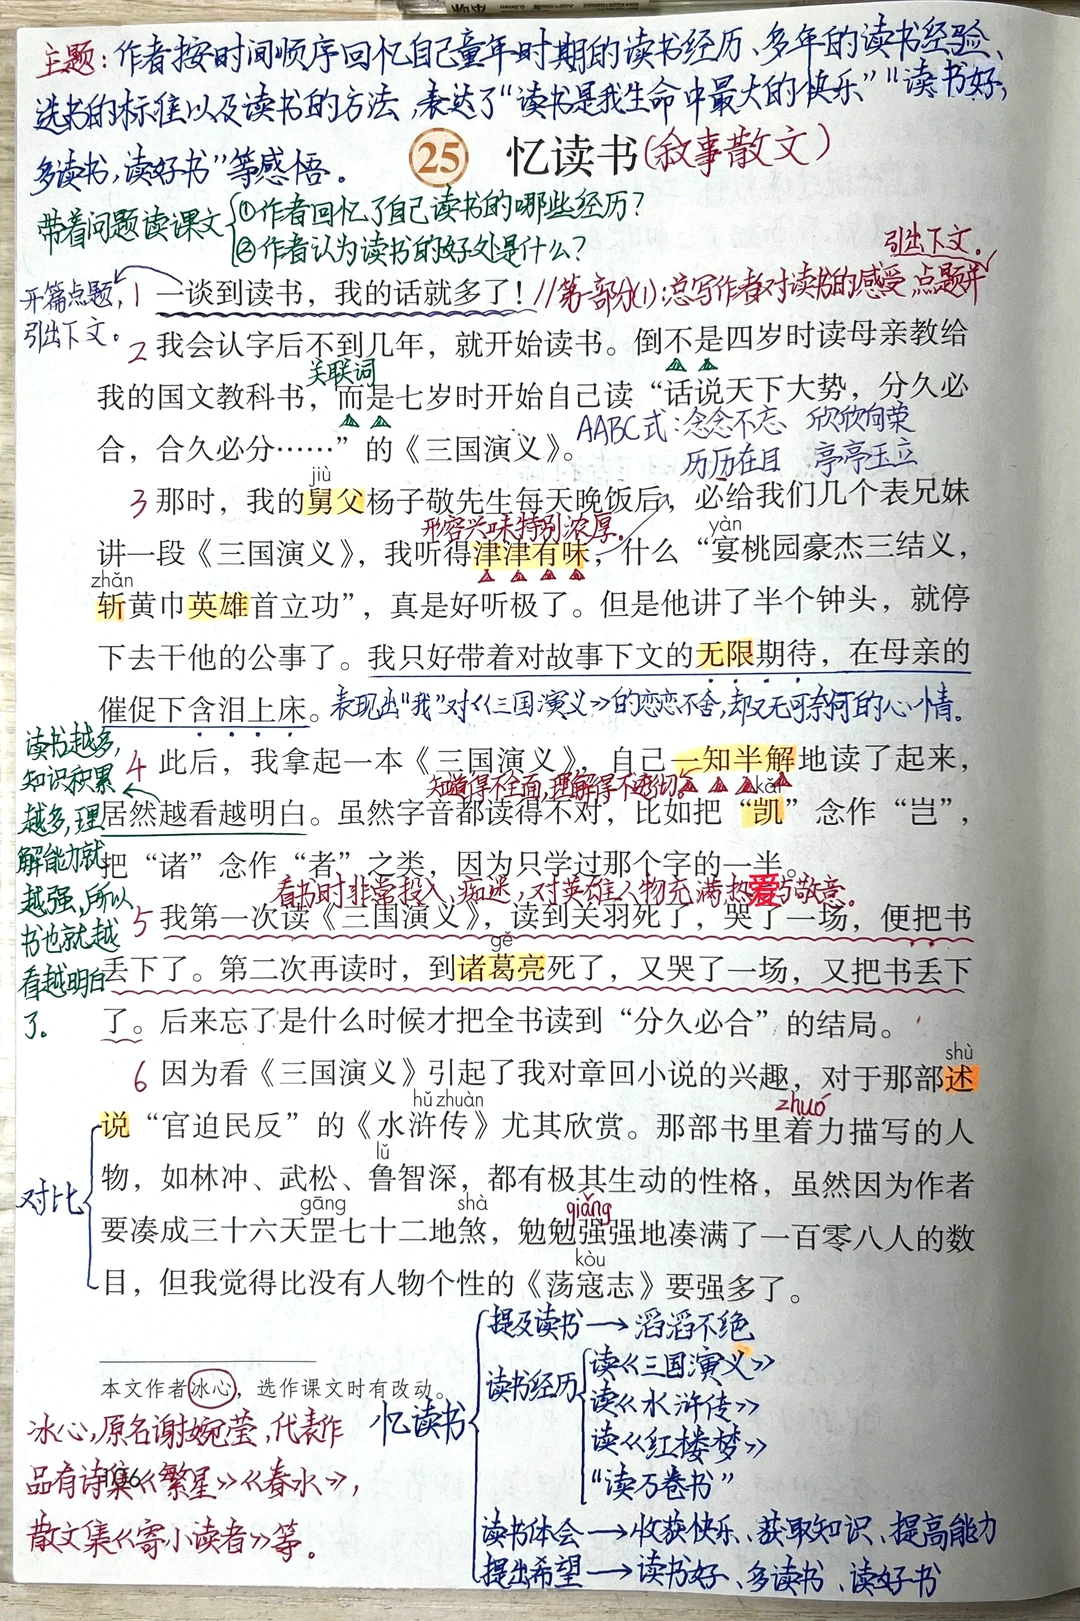 主题：作者按时间顺序回忆自己童年时期的读书经历、多年的读书经验、
选书的标准以及读书的方法，表达了“读书是我生命中最大的快乐”“读书好，
多读书，读好书”等感悟。
25 忆读书(叙事散文)
带着问题读课文
①作者回忆了自己读书的哪些经历？
②作者认为读书的好处是什么？
引出下文。
开篇点题，
引出下文。
1 一谈到读书，我的话就多了！//第一部分(1)：总写作者对读书的感受，点题并
2 我会认字后不到几年，就开始读书。倒不是四岁时读母亲教给
关联词
我的国文教科书，而是七岁时开始自己读“话说天下大势，分久必
合，合久必分……”的《三国演义》。
AABC式：念念不忘 欣欣向荣
历历在目 亭亭玉立
jiù
3 那时，我的舅父杨子敬先生每天晚饭后，必给我们几个表兄妹
形容兴味特别浓厚。
yàn
讲一段《三国演义》，我听得津津有味，什么“宴桃园豪杰三结义，
zhǎn
斩黄巾英雄首立功”，真是好听极了。但是他讲了半个钟头，就停
下去干他的公事了。我只好带着对故事下文的无限期待，在母亲的
催促下含泪上床。表现出“我”对《三国演义》的恋恋不舍，却又无可奈何的心情。
读书越多，
知识积累
越多，理
解能力就
越强，所以
书也就越
看越明白
了。
4 此后，我拿起一本《三国演义》，自己一知半解地读了起来，
知道得不全面，理解得不透彻。
kǎi
居然越看越明白。虽然字音都读得不对，比如把“凯”念作“岂”，
把“诸”念作“者”之类，因为只学过那个字的一半。
看书时非常投入、痴迷，对英雄人物充满热爱与敬意。
5 我第一次读《三国演义》，读到关羽死了，哭了一场，便把书
gě
丢下了。第二次再读时，到诸葛亮死了，又哭了一场，又把书丢下
了。后来忘了是什么时候才把全书读到“分久必合”的结局。
6 因为看《三国演义》引起了我对章回小说的兴趣，对于那部述
shù
hǔ zhuàn
zhuó
说“官迫民反”的《水浒传》尤其欣赏。那部书里着力描写的人
lǔ
物，如林冲、武松、鲁智深，都有极其生动的性格，虽然因为作者
gāng
shà
qiǎng
要凑成三十六天罡七十二地煞，勉勉强强地凑满了一百零八人的数
kòu
目，但我觉得比没有人物个性的《荡寇志》要强多了。
对比
本文作者冰心，选作课文时有改动。
冰心，原名谢婉莹，代表作
品有诗集《繁星》《春水》，
散文集《寄小读者》等。
106
忆读书
提及读书→滔滔不绝
读书经历
读《三国演义》
读《水浒传》
读《红楼梦》
“读万卷书”
读书体会→收获快乐、获取知识、提高能力
提出希望→读书好、多读书、读好书